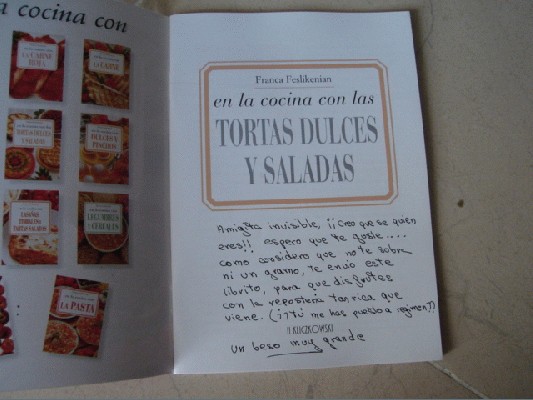 a cocina con
LA CARNE
TORTAS DULCES
Y SALADAS
DULCES Y
LEGUMBRES
Y CEREALES
LA PASTA
Franca Feslikenian
en la cocina con las
TORTAS DULCES
Y SALADAS
Amigita invisible, ¡¡Creo que se quien
eres!! espero que te guste.....
como considero que no te sobra
ni un gramo, te envio este
librito, para que disfrutes
con la reposteria tan rica que
viene. (¡¡Tú me has puesto a regimen?)
KLICZKOWSKI
un beso muy grande